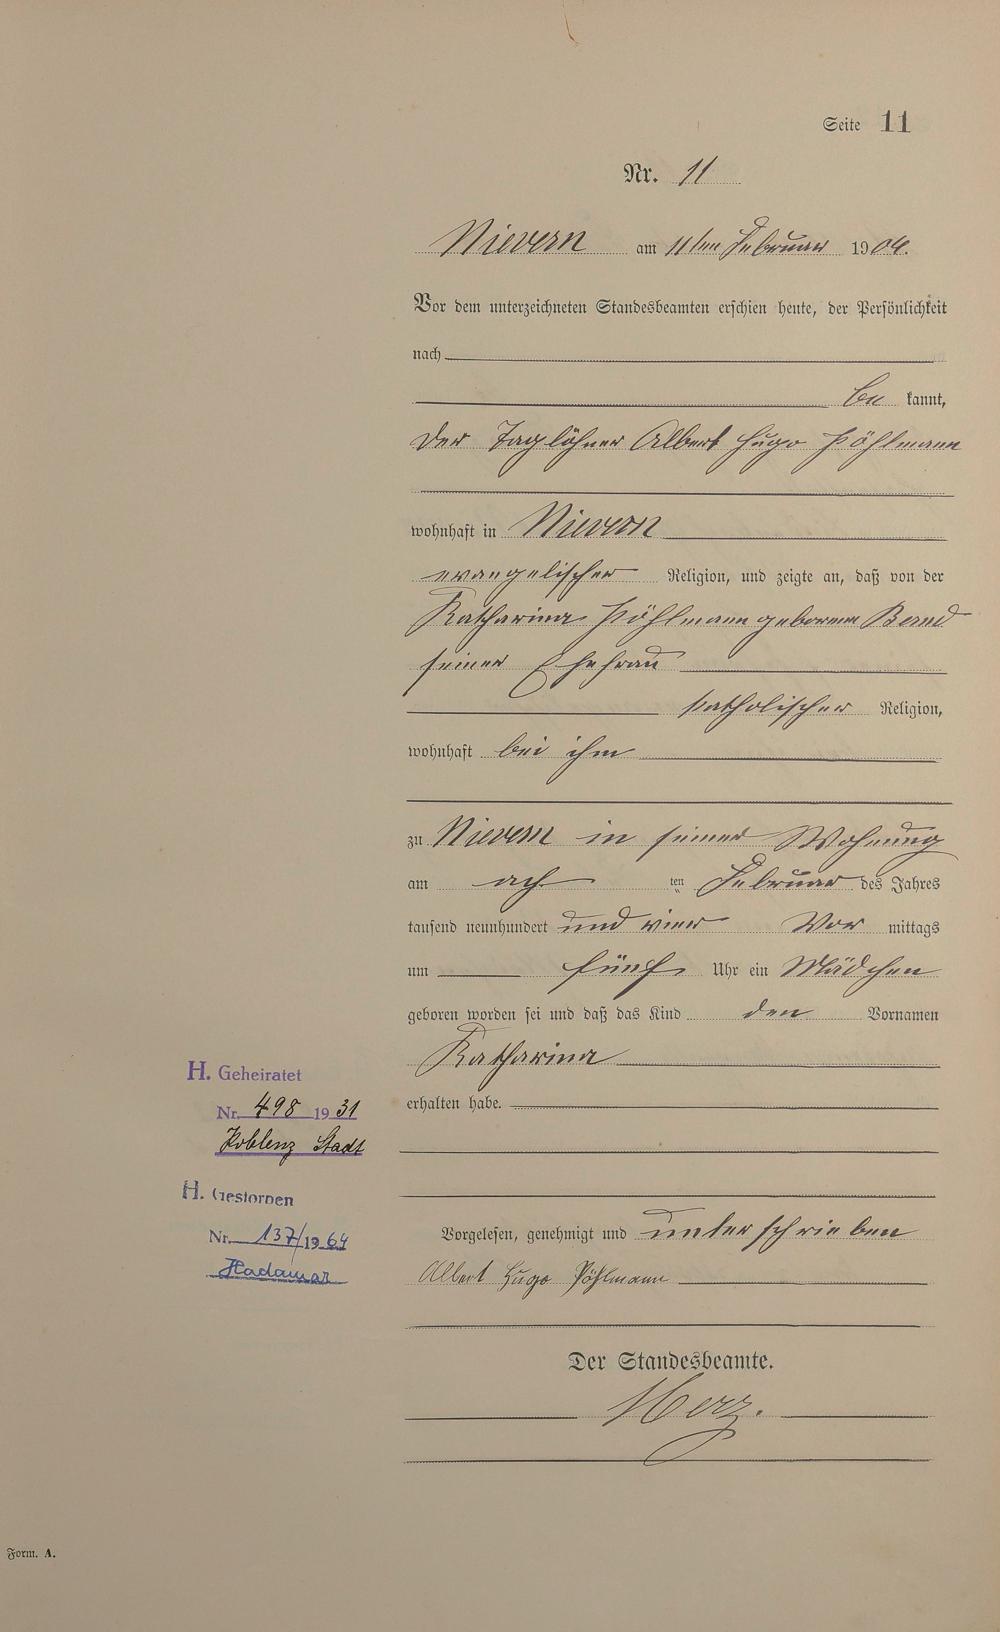 Seite 11
Nr. 11
Nievern am 11ten Februar 1904.
Vor dem unterzeichneten Standesbeamten erschien heute, der Persönlichkeit
nach
be kannt,
der Taglöhner Albert Hugo Pöhlmann
wohnhaft in Nievern
evangelischer Religion, und zeigte an, daß von der
Katharina Pöhlmann geborenen Bernd
seiner Ehefrau
katholischer Religion,
wohnhaft bei ihm
zu Nievern in seiner Wohnung
am ach ten Februar des Jahres
tausend neunhundert und vier Vor mittags
um fünf Uhr ein Mädchen
geboren worden sei und daß das Kind den Vornamen
Katharina
erhalten habe.
H. Geheiratet
Nr. 498 1931
Koblenz Stadt
H. Gestorben
Nr. 137/1964
Hadamar
Vorgelesen, genehmigt und unterschrieben
Albert Hugo Pöhlmann
Der Standesbeamte.
Merz.
Form. A.